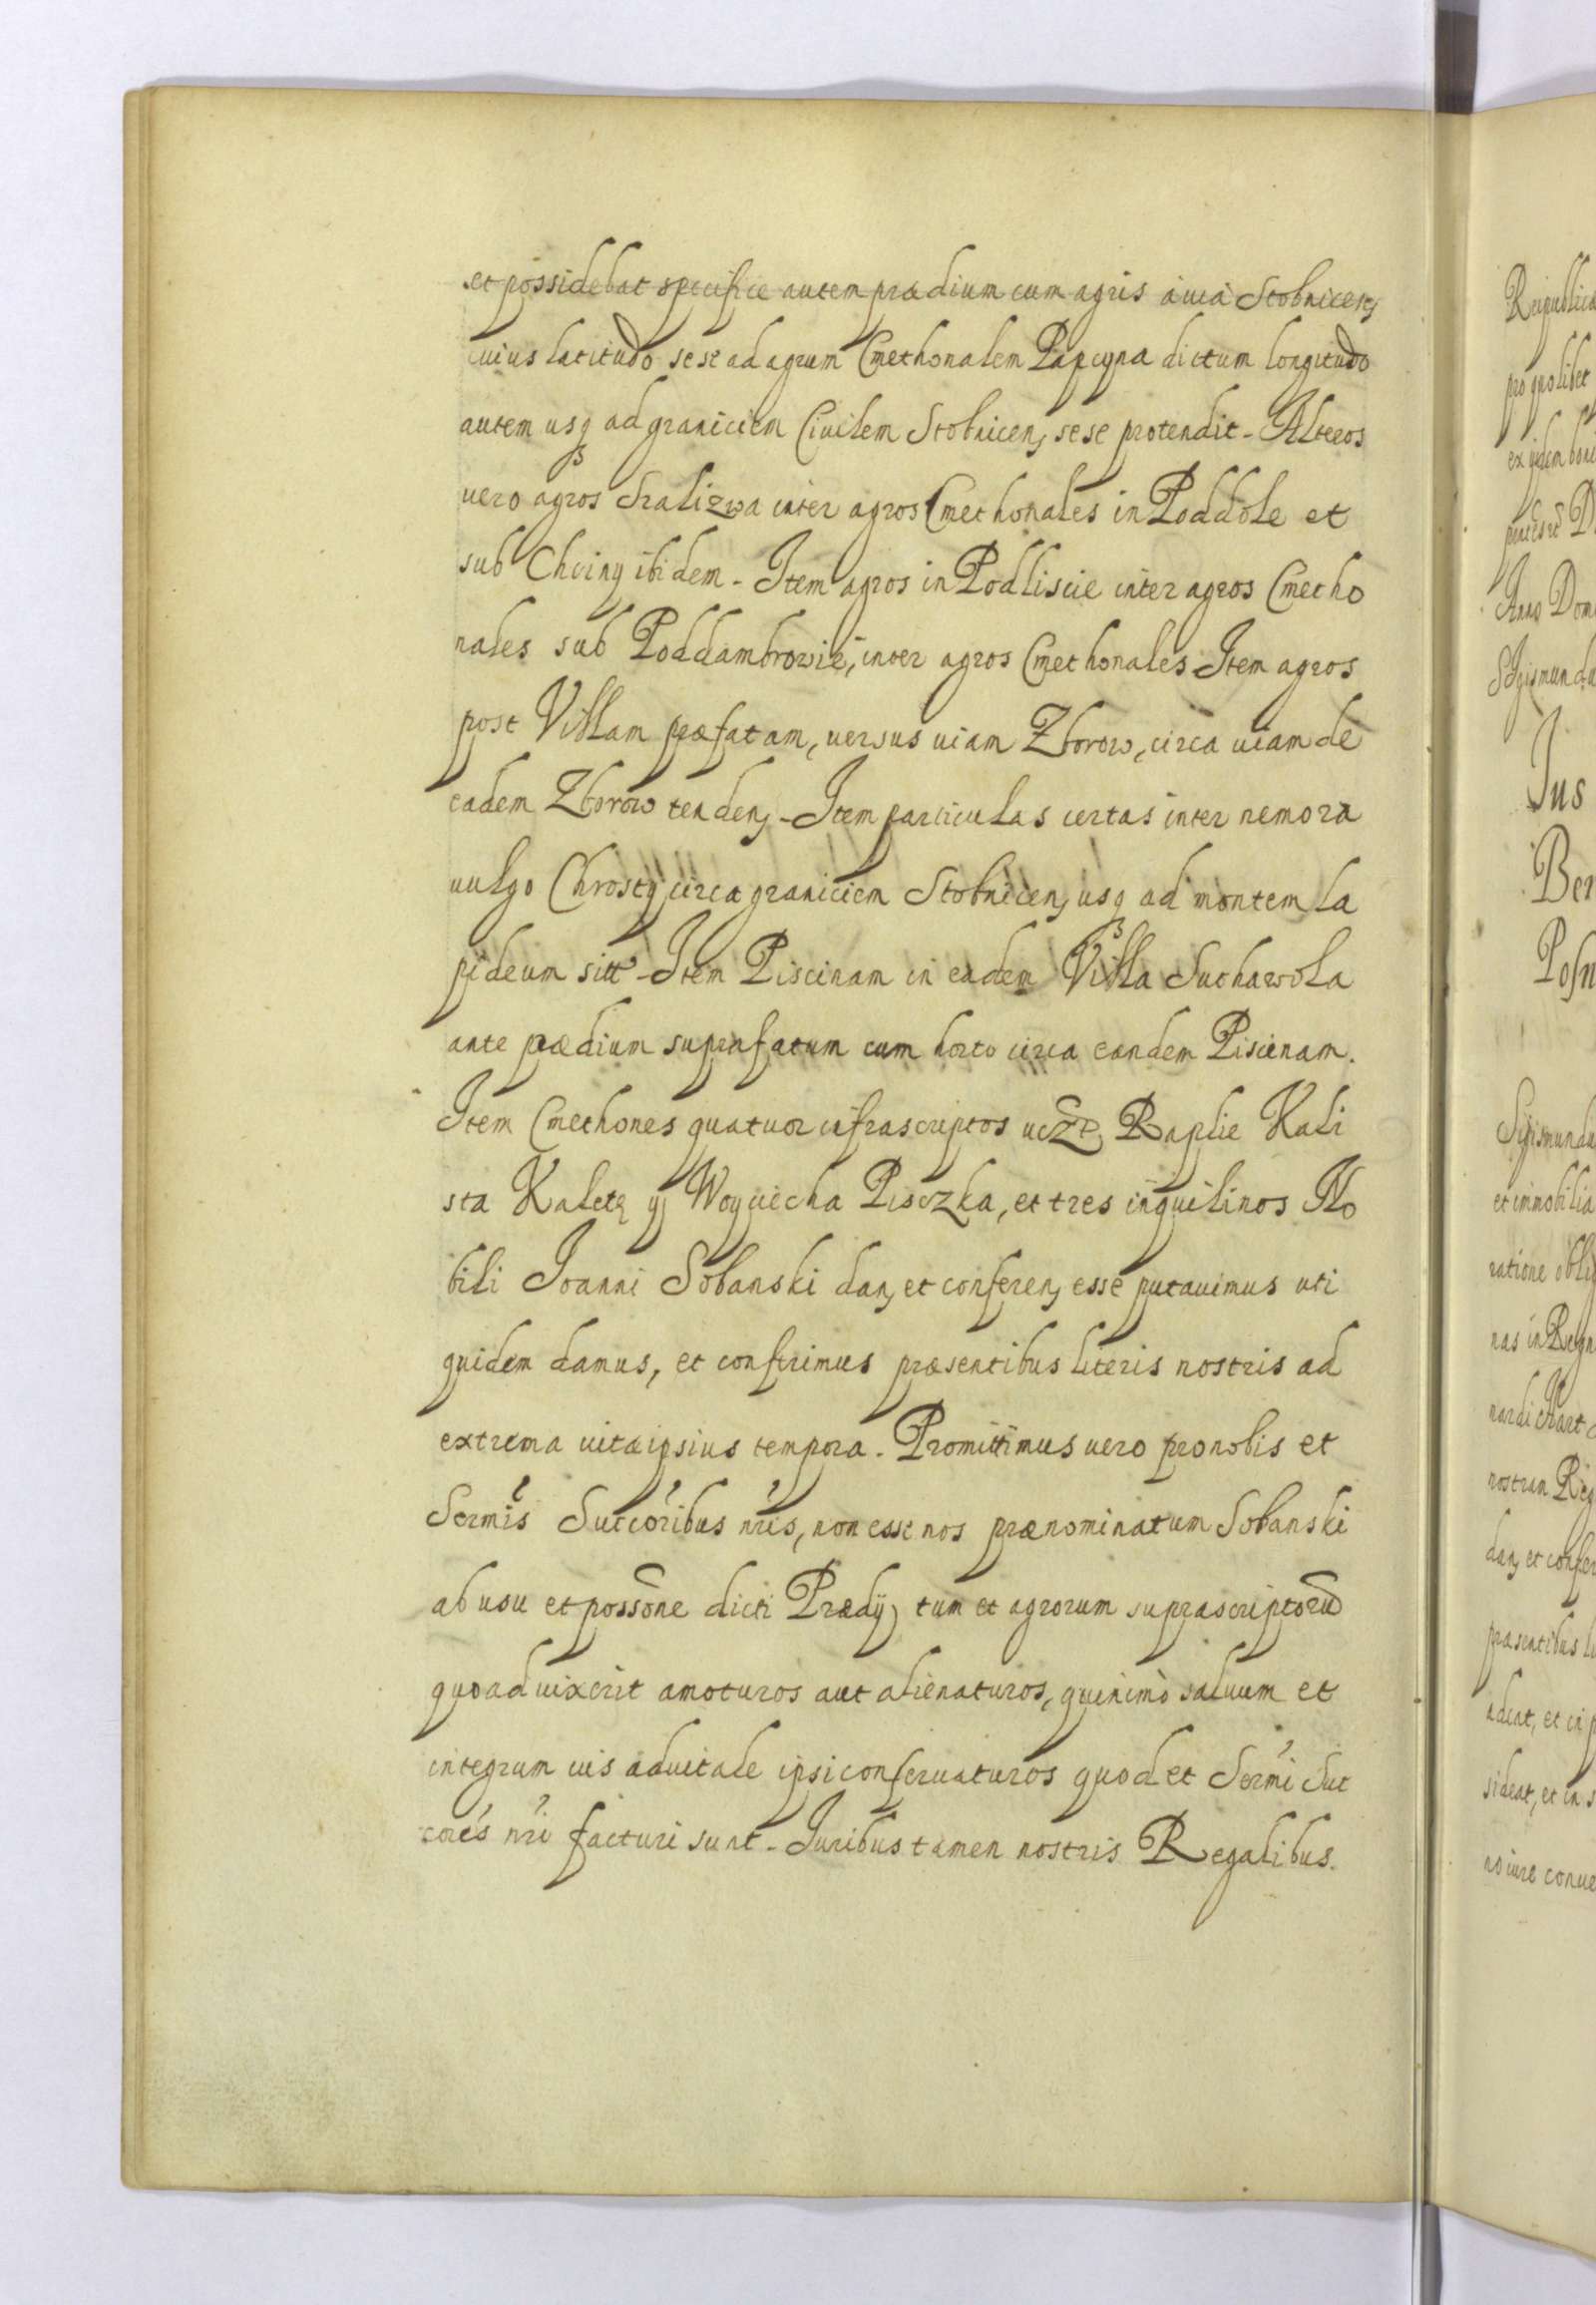 et possidebat specifice autem prædium cum agris a via Stobnicen,
cuius latitudo sese ad agrum Cmethonalem Papcyna dictum longitudo
autem usq ad graniciem Civilem Stobnicen, sese protendit - Alteros
vero agros inter agros Cmethonales in Poddole et
sub Choiny ibidem - Item agros in Podliscie inter agros Cmetho
nales sub Poddambrowie, inter agros Cmethonales Item agros
post Villam præfatam, versus viam Zborow, circa viam de
eadem Zborow tenden, - Item particulas certas inter nemora
vulgo Chrosty circa graniciem Stobnicen, usq ad montem la
pideum sitt - Item Piscinam in eadem Villa Suchawola
ante prædium suprafatum cum horto circa eandem Piscinam.
Item Cmethones quatuor infrascriptos Raplie Kali
sta Kaletę y Woyciecha Pisczka, et tres inquilinos No
bili Joanni Sobanski dan, et conferen, esse putavimus uti
quidem damus, et conferimus præsentibus literis nostris ad
extrema vitæ ipsius tempora - Promittimus vero pro nobis et
Sermis Succoribus nris, non esse nos prænominatum Sobanski
ab usu et possone dicti Prædij, tum et agrorum suprascriptorū
quoad vixerit amoturos aut alienaturos, quinimò salvum et
integrum ius advitale ipsi conservaturos quod et Sermi Suc
cores nri facturi sunt - Juribus tamen nostris Regalibus.
Reipublicæ
pro quolibet
Anno Domi
Sigismundu
Jus
Ber
Posn
Sigismundu
et immobilia
ratione oblig
nas in Regn
nostram Reg
dan, et confer
præsentibus li
adeat, et in p
sideat, et in s
no iure conve